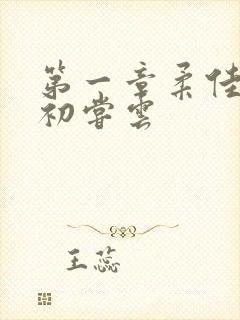 第一章柔佳
初尝云
王蕊